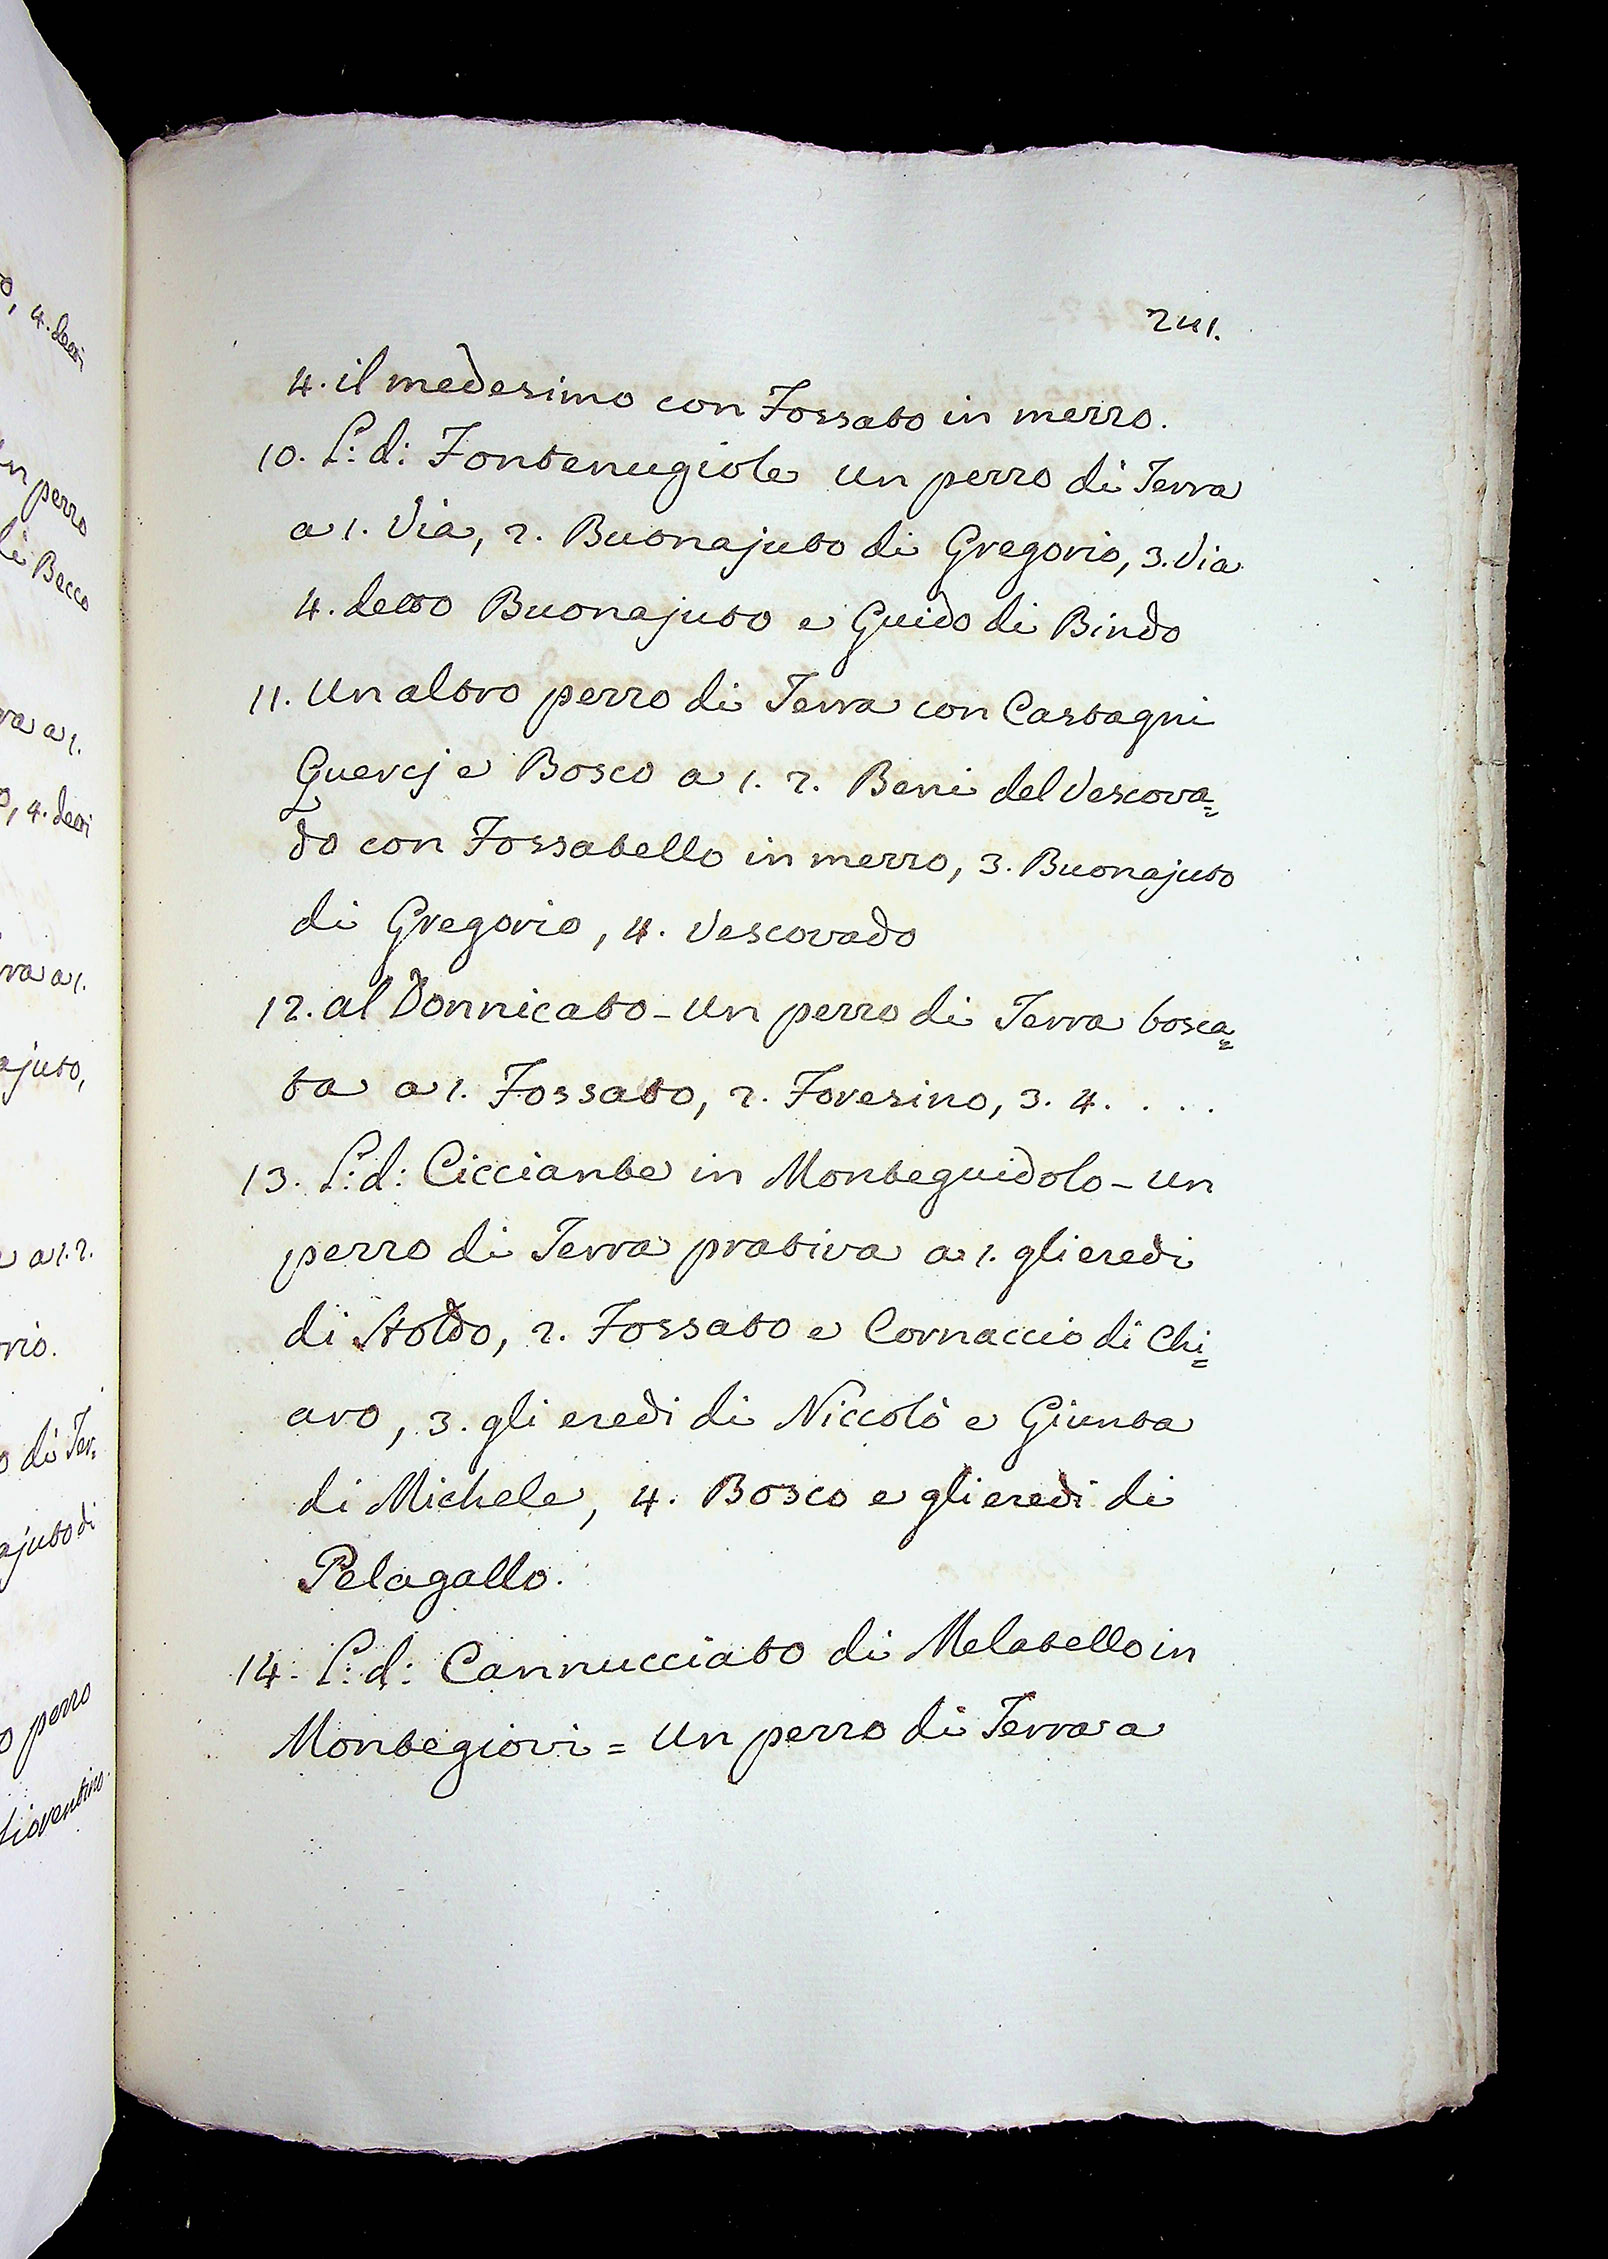 o, 4. detti
un pezzo
di Becco
rra a 1.
o, 4. detti
rra a 1.
ajuto,
e a 1. 2.
orio.
o di Ter=
ajuto di
o pezzo
Fioventino.
241.
4. il medesimo con Fossato in mezzo.
10. L: d: Fontenugiole un pezzo di Terra
a 1. Via, 2. Buonajuto di Gregorio, 3. Via
4. detto Buonajuto e Guido di Bindo
11. Un altro pezzo di Terra con Castagni
Quercj e Bosco a 1. 2. Beni del Vescova=
do con Fossatello in mezzo, 3. Buonajuto
di Gregorio, 4. Vescovado
12. al Donnicato - Un pezzo di Terra bosca=
ta a 1. Fossato, 2. Foresino, 3. 4. . . .
13. L: d: Cicciante in Monteguidolo - Un
pezzo di Terra prativa a 1. gli eredi
di Stoldo, 2. Fossato e Cornaccio di Chi=
aro, 3. gli eredi di Niccolò e Giunta
di Michele, 4. Bosco e gli eredi di
Pelagallo.
14. L: d: Cannucciato di Melatello in
Montegiovi = Un pezzo di Terra a